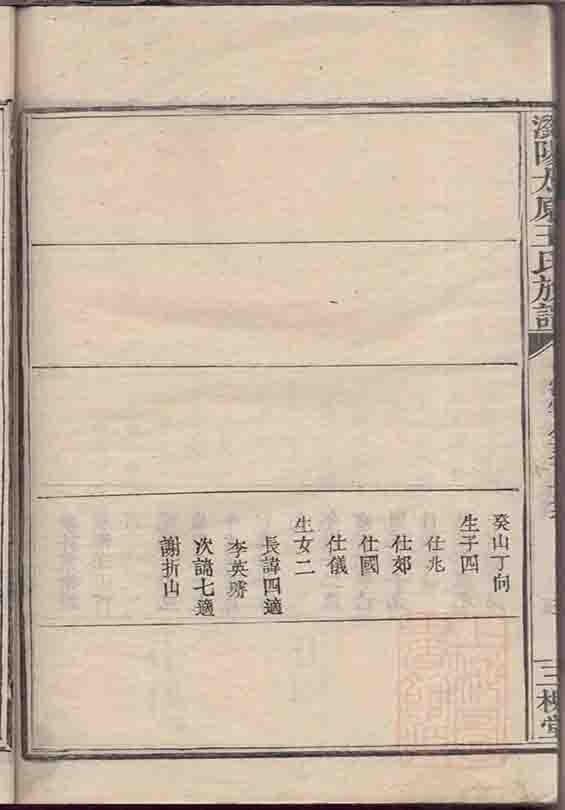 瀏陽太原王氏族譜
三槐堂
癸山丁向
生子四
仕兆
仕郊
仕國
仕儀
生女二
長諱四適
李英瑃
次諱七適
謝折山